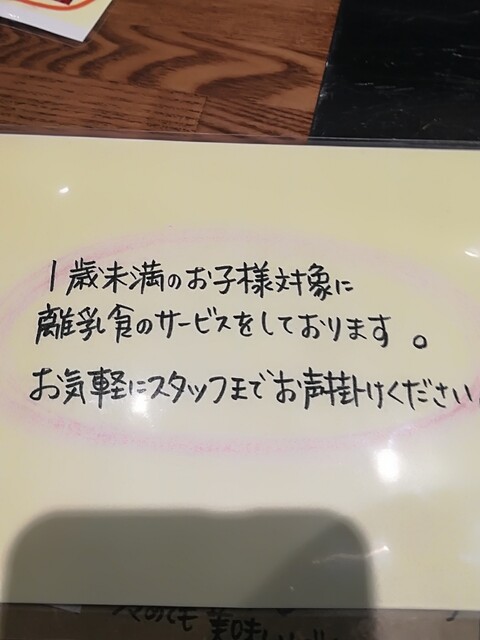 1歳未満のお子様対象に
離乳食のサービスをしております。
お気軽にスタッフまでお声掛けください。